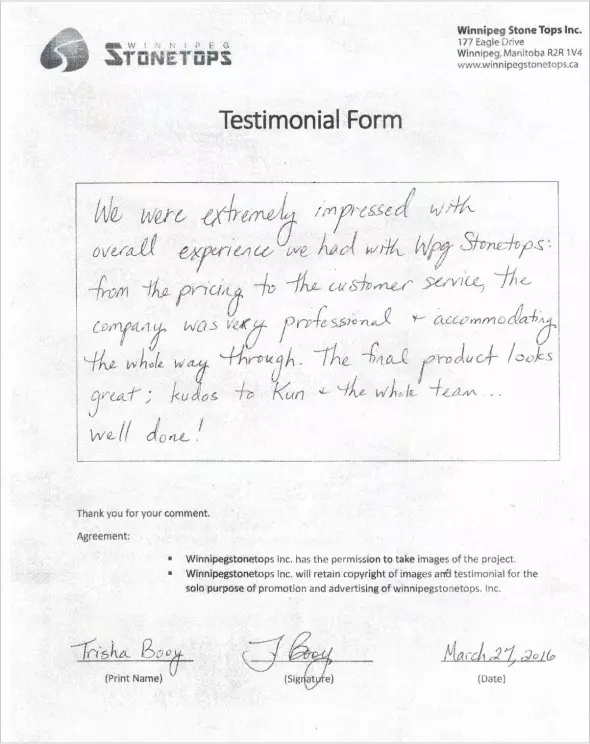 WINNIPEG
STONETOPS
Winnipeg Stone Tops Inc.
177 Eagle Drive
Winnipeg, Manitoba R2R 1V4
www.winnipegstonetops.ca
Testimonial Form
We were extremely impressed with
overall experience we had with Wpg Stonetops:
from the pricing to the customer service, the
company was very professional + accommodating
the whole way through. The final product looks
great; kudos to Kun + the whole team...
well done!
Thank you for your comment.
Agreement:
▪ Winnipegstonetops Inc. has the permission to take images of the project.
▪ Winnipegstonetops Inc. will retain copyright of images and testimonial for the
solo purpose of promotion and advertising of winnipegstonetops. Inc.
Trisha Booy J Booy March 27, 2016
(Print Name) (Signature) (Date)